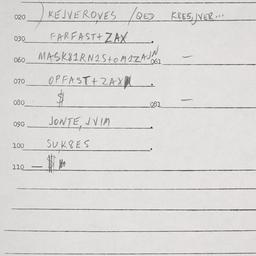 020 ) KEJVEROVES /QED KBESJVER...
030 FARFAST + ZAX
060 MASK81RN1S+OM1ZAJN 061 —
070 OPFAST + ZAX
080 $ 081 —
090 JONTE, JVIM
100 SUKSES
110 — $